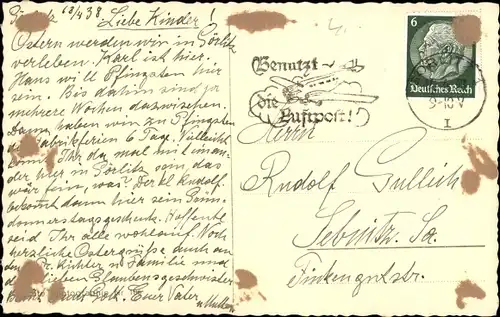 13/4 38
Liebe Kinder!
Ostern werden wir in Görlitz
verleben. Karl ist hier.
Hans will Pfingsten hier
sein. Bis dahin sind ja
mehrere Wochen dazwischen.
Dann haben wir zu Pfingsten
Fabrikferien 6 Tage. Vielleicht
könnt Ihr da mal mit
hier in Görlitz sein, das
wär fein, was? Rudolf
dann hier sein
Hoffentl.
seid Ihr alle wohlauf. Noch
herzliche Ostergrüße durch
Richter u. Familie und
lieben Glaubensgeschwister
Gott. Euer Vater
u. Mutter
Benutzt
die
Luftpost!
6
Deutsches Reich
9-10 V
I
Herrn
Rudolf Gullich
Sebnitz. Sa.
Finkengutstr.